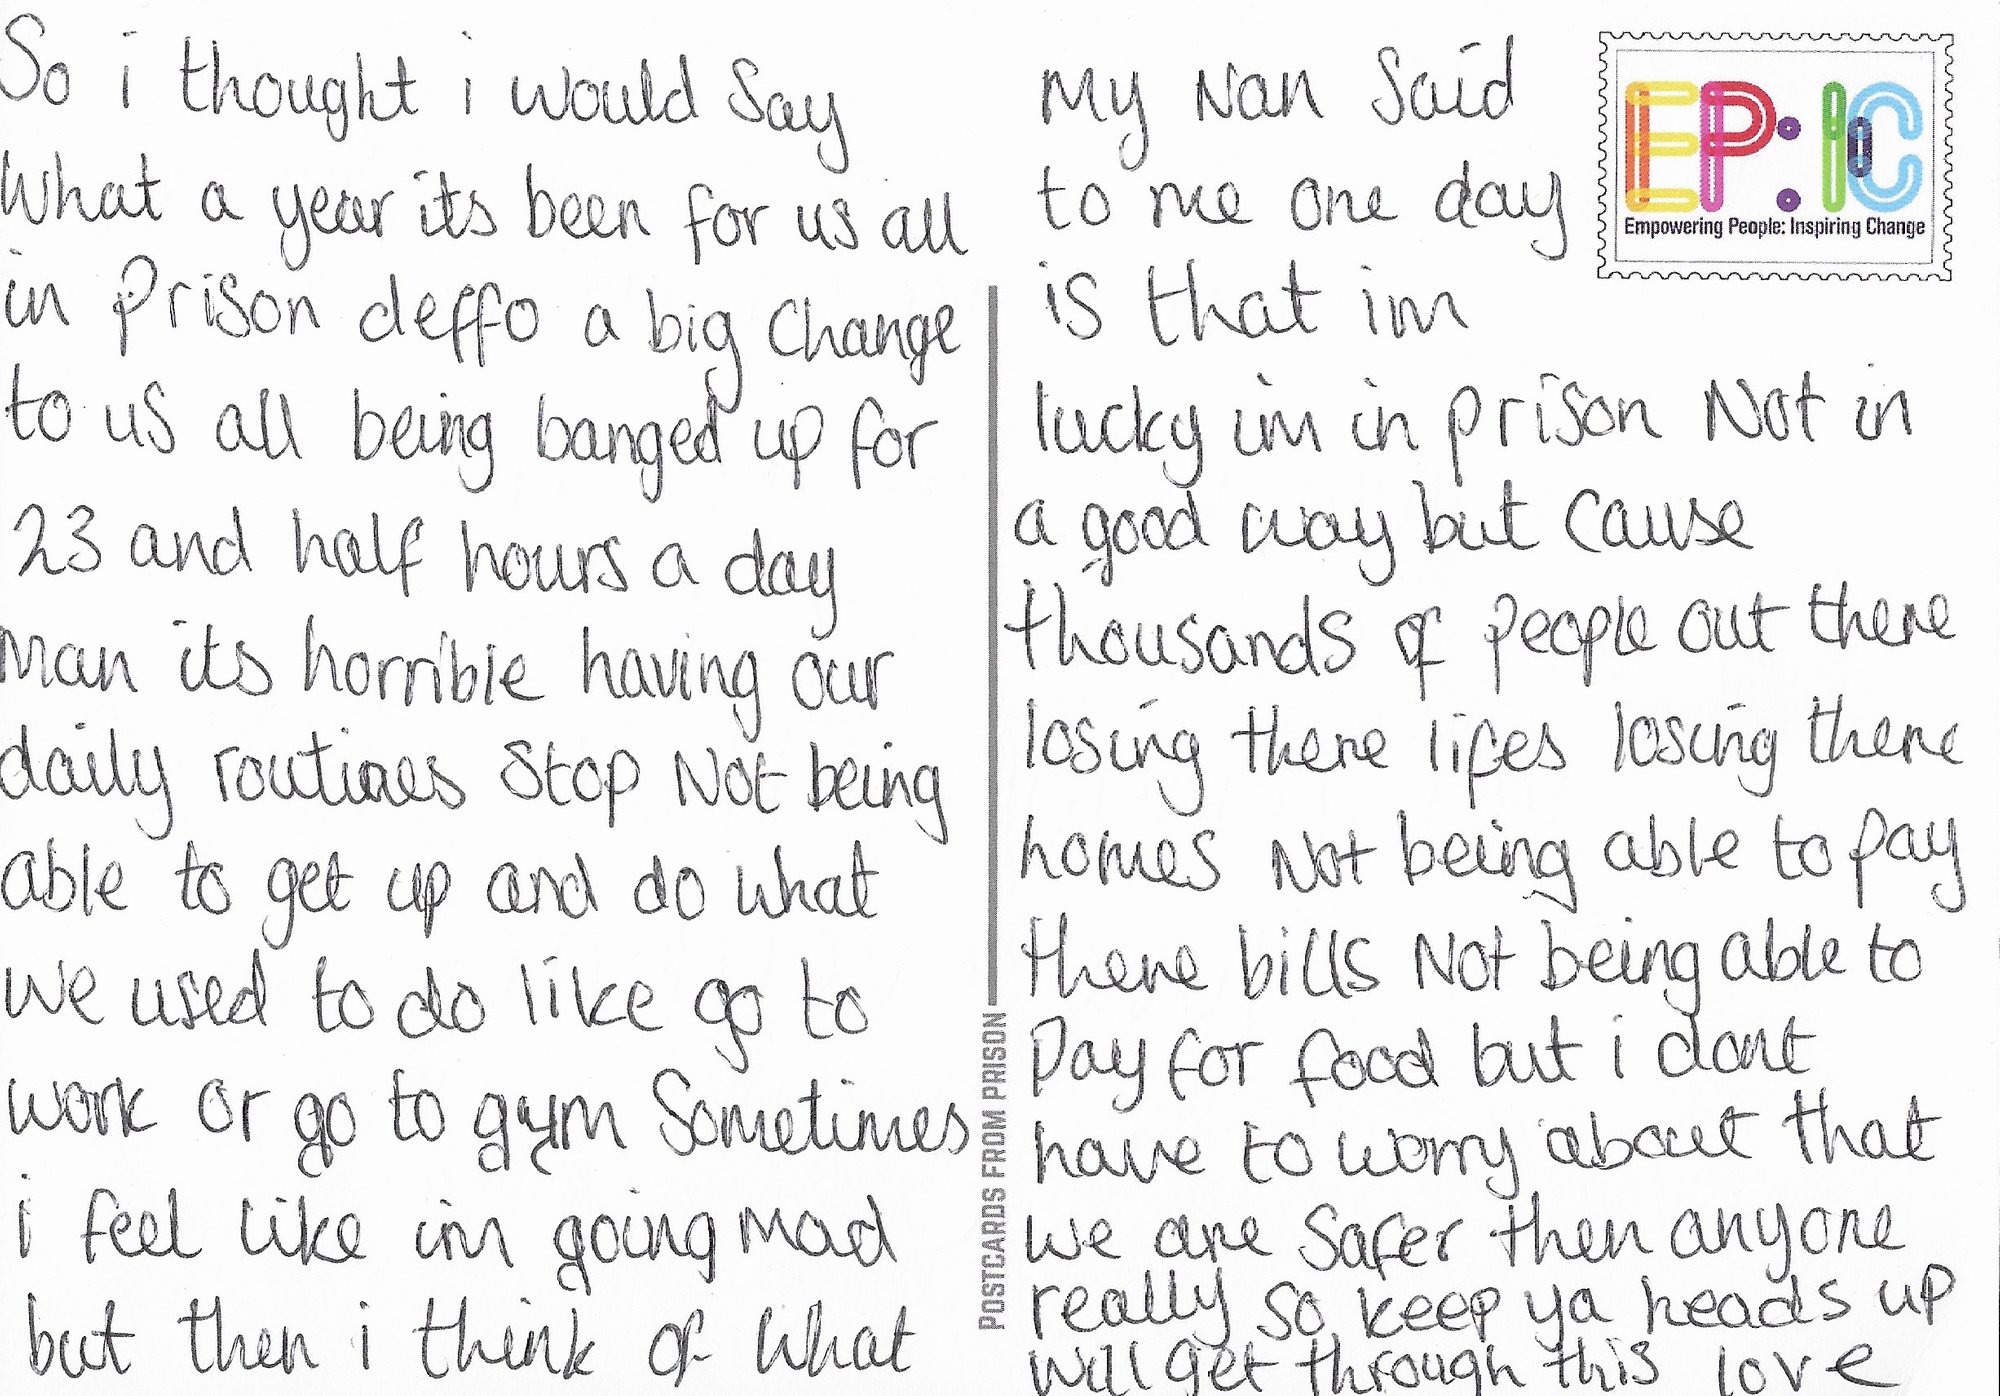 So i thought i would say
What a year its been for us all
in Prison deffo a big Change
to us all being banged up for
23 and half hours a day
Man its horrible having our
daily routines Stop Not being
able to get up and do what
We used to do like go to
work or go to gym Sometimes
i feel like im going mad
but then i think of what
POSTCARDS FROM PRISON
My Nan Said
to me one day
is that im
lucky im in prison Not in
a good way but Cause
thousands of people out there
losing there lifes losing there
homes Not being able to pay
there bills Not being able to
Pay for food but i dont
have to worry about that
We are Safer then anyone
really so keep ya heads up
will get through this love
EP:IC
Empowering People: Inspiring Change